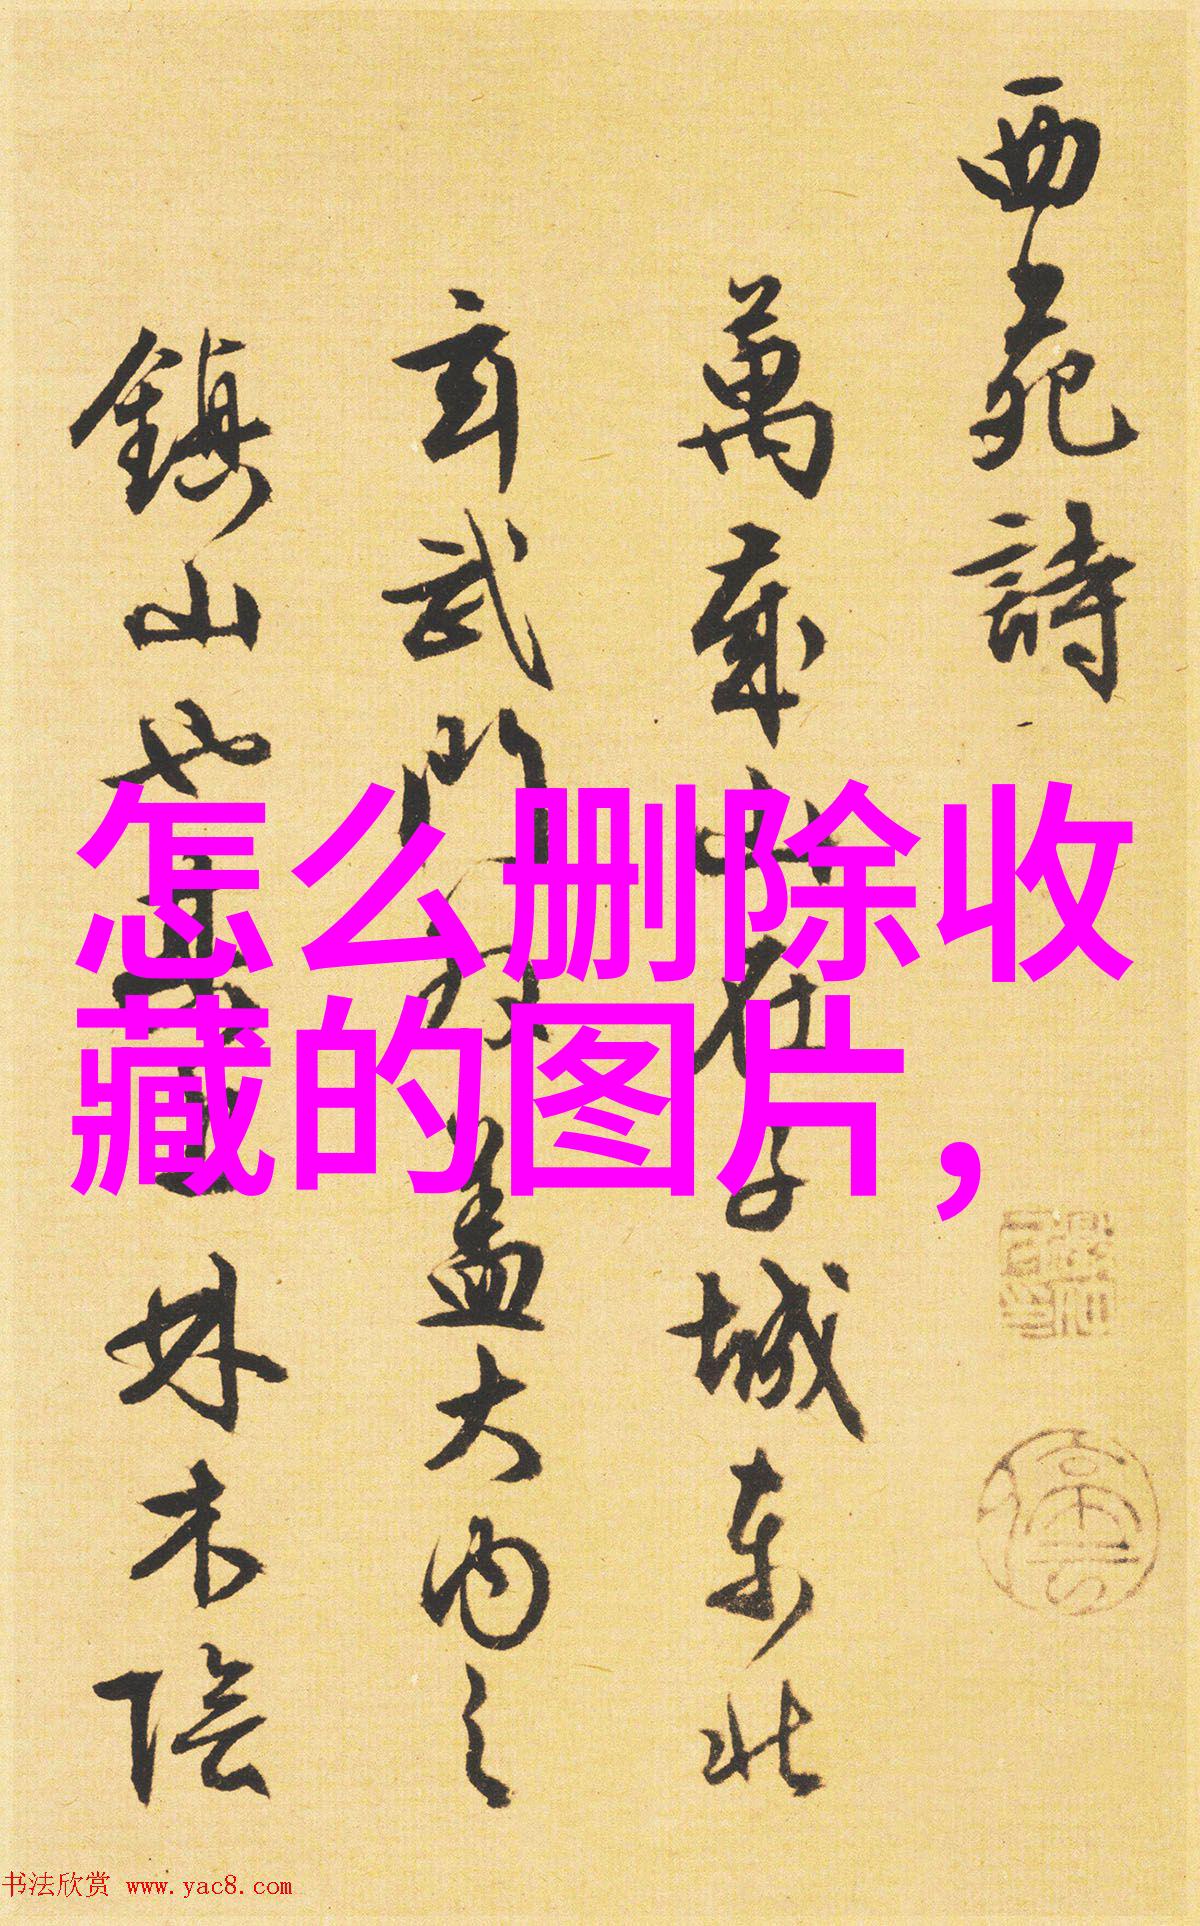 西苑詩
萬歲山在子城東北
玄武門
蓋大內之
鎮山也
林木陰
怎么删除收
藏的图片,
书法欣赏 www.yac8.com